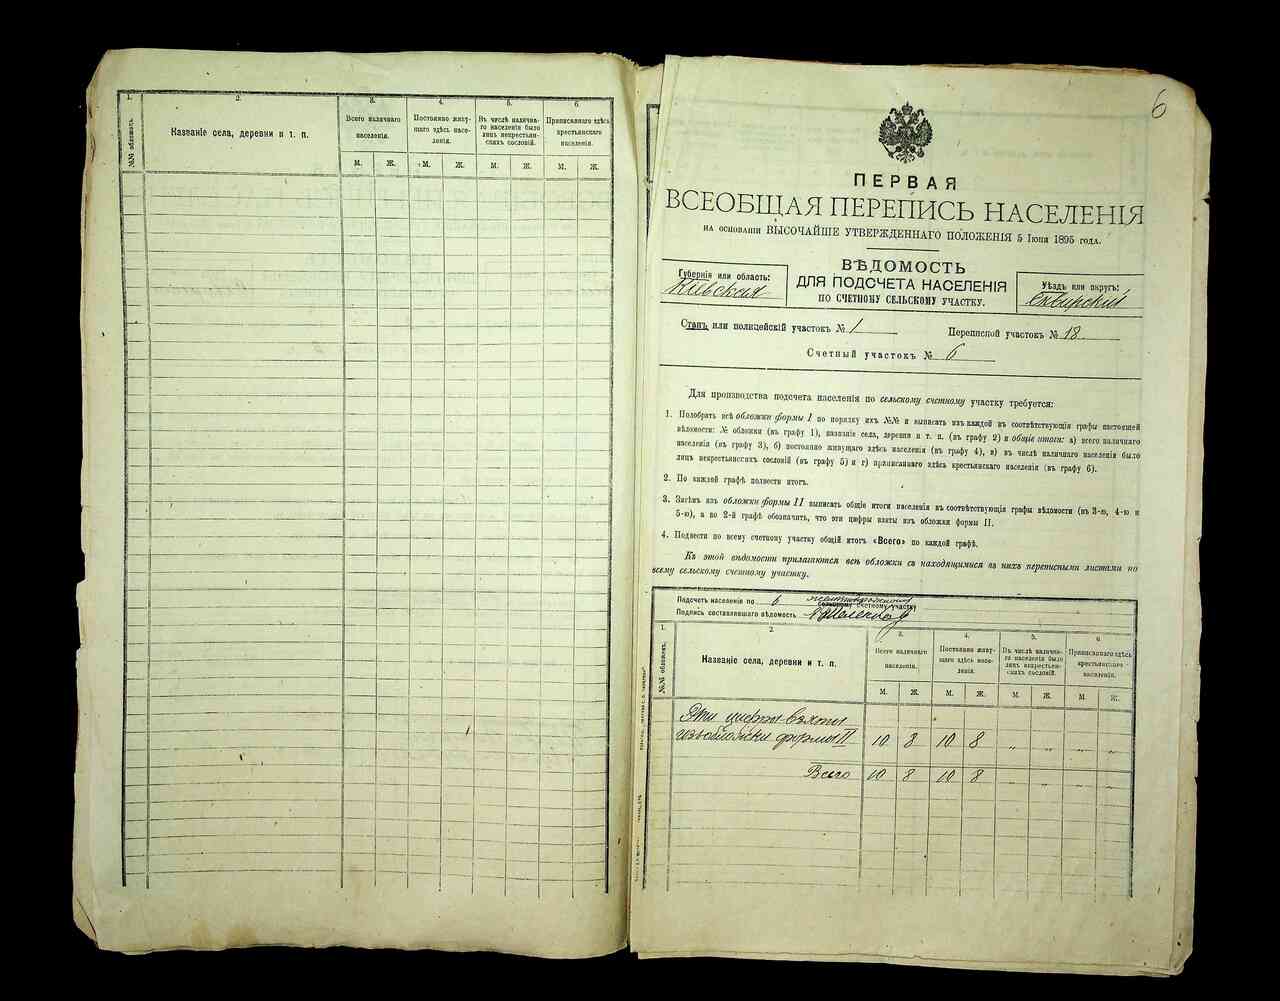 1.
2.
3.
4.
5.
6.
№№ обложекъ.
Названіе села, деревни и т. п.
Всего наличнаго
населенія.
Постоянно живу-
щаго здѣсь насе-
ленія.
Въ числѣ налична-
го населенія было
лицъ некрестьян-
скихъ сословій.
Приписаннаго здѣсь
крестьянскаго
населенія.
М. Ж. М. Ж. М. Ж. М. Ж.
6
ПЕРВАЯ
ВСЕОБЩАЯ ПЕРЕПИСЬ НАСЕЛЕНІЯ
НА ОСНОВАНІИ ВЫСОЧАЙШЕ УТВЕРЖДЕННАГО ПОЛОЖЕНІЯ 5 Іюня 1895 года.
Губернія или область:
Кіевская
ВѢДОМОСТЬ
ДЛЯ ПОДСЧЕТА НАСЕЛЕНІЯ
ПО СЧЕТНОМУ СЕЛЬСКОМУ УЧАСТКУ.
Уѣздъ или округъ:
Сквирскій
Станъ или полицейскій участокъ № 1
Переписной участокъ № 18.
Счетный участокъ № 6
Для производства подсчета населенія по сельскому счетному участку требуется:
1. Подобрать всѣ обложки формы I по порядку ихъ №№ и выписать изъ каждой въ соотвѣтствующія графы настоящей
вѣдомости: № обложки (въ графу 1), названіе села, деревни и т. п. (въ графу 2) и общіе итоги: а) всего наличнаго
населенія (въ графу 3), б) постоянно живущаго здѣсь населенія (въ графу 4), в) въ числѣ наличнаго населенія было
лицъ некрестьянскихъ сословій (въ графу 5) и г) приписаннаго здѣсь крестьянскаго населенія (въ графу 6).
2. По каждой графѣ подвести итогъ.
3. Затѣмъ изъ обложки формы II выписать общіе итоги населенія въ соотвѣтствующія графы вѣдомости (въ 3-ю, 4-ю и
5-ю), а во 2-й графѣ обозначить, что эти цифры взяты изъ обложки формы II.
4. Подвести по всему счетному участку общій итогъ «Всего» по каждой графѣ.
Къ этой вѣдомости прилагаются всѣ обложки съ находящимися въ нихъ переписными листами по
всему сельскому счетному участку.
Подсчетъ населенія по 6
сельскому счетному участку
Подпись составлявшаго вѣдомость
1.
2.
3.
4.
5.
6.
№№ обложекъ.
Названіе села, деревни и т. п.
Всего наличнаго
населенія.
Постоянно живу-
щаго здѣсь насе-
ленія.
Въ числѣ налична-
го населенія было
лицъ некрестьян-
скихъ сословій.
Приписаннаго здѣсь
крестьянскаго
населенія.
М. Ж. М. Ж. М. Ж. М. Ж.
Эти цифры взяты
изъ обложки формы II 10 8 10 8 „ „ „ „
Всего 10 8 10 8